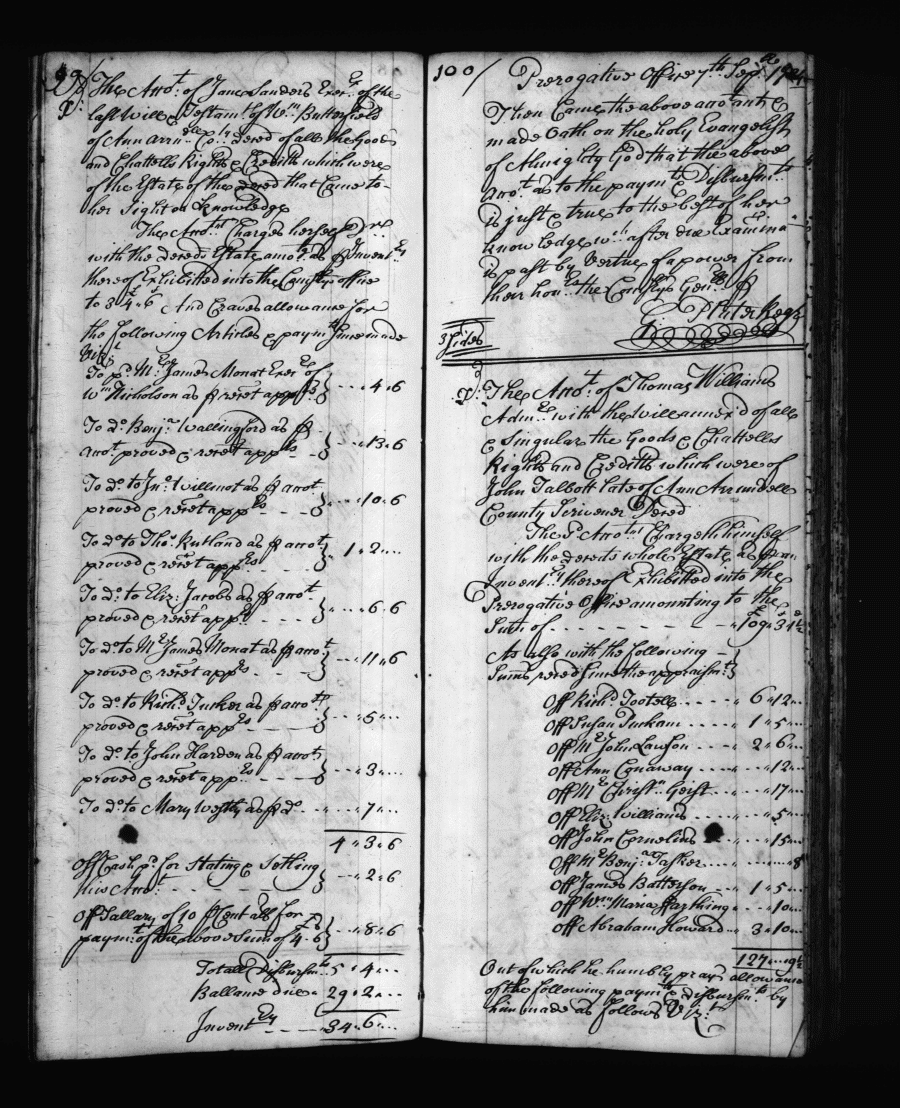 99/
The Acco.t of Jane Sanders Exer.x of the
last Will & Testam.t of W.m Butterfield
of Ann Arrn.dell Co.ty deced of all the Goods
and Chattells Rights & Creditts which were
of the Estate of the deced that Came to
her Sight or Knowledge
The Acco.tnt Charges herself D.r
with the deceds Estate amo.t as P Invent.ry
thereof Exhibitted into the Comisrys office
to 34..6 And Craves allowance for
the following Articles & paym.ts Since made
Viz.t
To p.d M.r James Monat Exer of
W.m Nicholson as P recet appears } --- 4 . 6
To d.o Benj.a Wallingford as P
acco.t proved & recet app.rs } 13 . 6
To d.o to Jn.o Willmot as P acco.t
proved & recet app.rs ---- } 10 . 6
To d.o to Tho.s Rutland as P acco.t
proved & recet app.rs } 1 . 2 ...
To d.o to Eliz: Jacobs as P acco.t
proved & recet app.rs } 6 . 6
To d.o to M.r James Monat as P acco.t
proved & recet app.rs ---- } 11 . 6
To d.o to Rich.d Tucker as P acco.t
proved & recet app.rs } 5 ...
To d.o to John Harden as P acco.t
proved & recet app.rs } 3 ...
To d.o to Mary as P d.o -- 7 ...
4 . 3 . 6
Off Cash p.d for Stating & Setling
this Acco.t } 2 . 6
Off Sallary of 10 P Cent all for
paym.t of the above Sum of 4 . 6 } 8 . 6
Totall Disbursm.ts 5 . 4 ...
Ballance due 29 . 2 ...
Invent.ry ---- 34 . 6 ...
100/
Prerogative Office 7.th Sep.r
Then Came the above acco.tant &
made Oath on the holy Evangelists
of Almighty God that the above
Acco.t as to the paym.ts & Disbursm.ts
is just & true to the best of her
knowledge w.ch after due Examina
is past by Vertue of a power from
their hon.rs the Comisrys Gen.ll P
Reg.r
3 Sides
The Acco.t of Thomas Williams
Adm.r with the Will annex'd of all
& Singular the Goods & Chattells
Rights and Creditts which were of
John Talbott late of Ann Arrundell
County Scrivener Deced
The s.d Acco.tnt Chargeth himself
with the deceds whole Estate as P an
Invent.ry thereof Exhibitted into the
Prerogative Office amounting to the
Sum of -------- 109 . 3 . 4 1/2
As also with the following
Sums reced Since the appraism.t }
Off Rich.d Tootell ---- 6 . 12 ...
Off Susan Durham ---- 1 . 5 ...
Off M.r John Lawson ---- 2 . 6 ...
Off Ann Conaway ---- 12 ...
Off M.r Christ.n Geist ---- 17 ...
Off Eliz: Williams ---- 5 ...
Off John Cornelius 15 ...
Off M.r Benj.a Tasker ---- 8
Off James Batterson -- 1 . 5 ...
Off W.m Maria Farthing -- 10 ...
Off Abraham Howard -- 3 . 10 ...
127 ... 19 1/2
Out of which he humbly prays allowance
of the following paym.ts & disbursm.ts by
him made as follows Viz.t